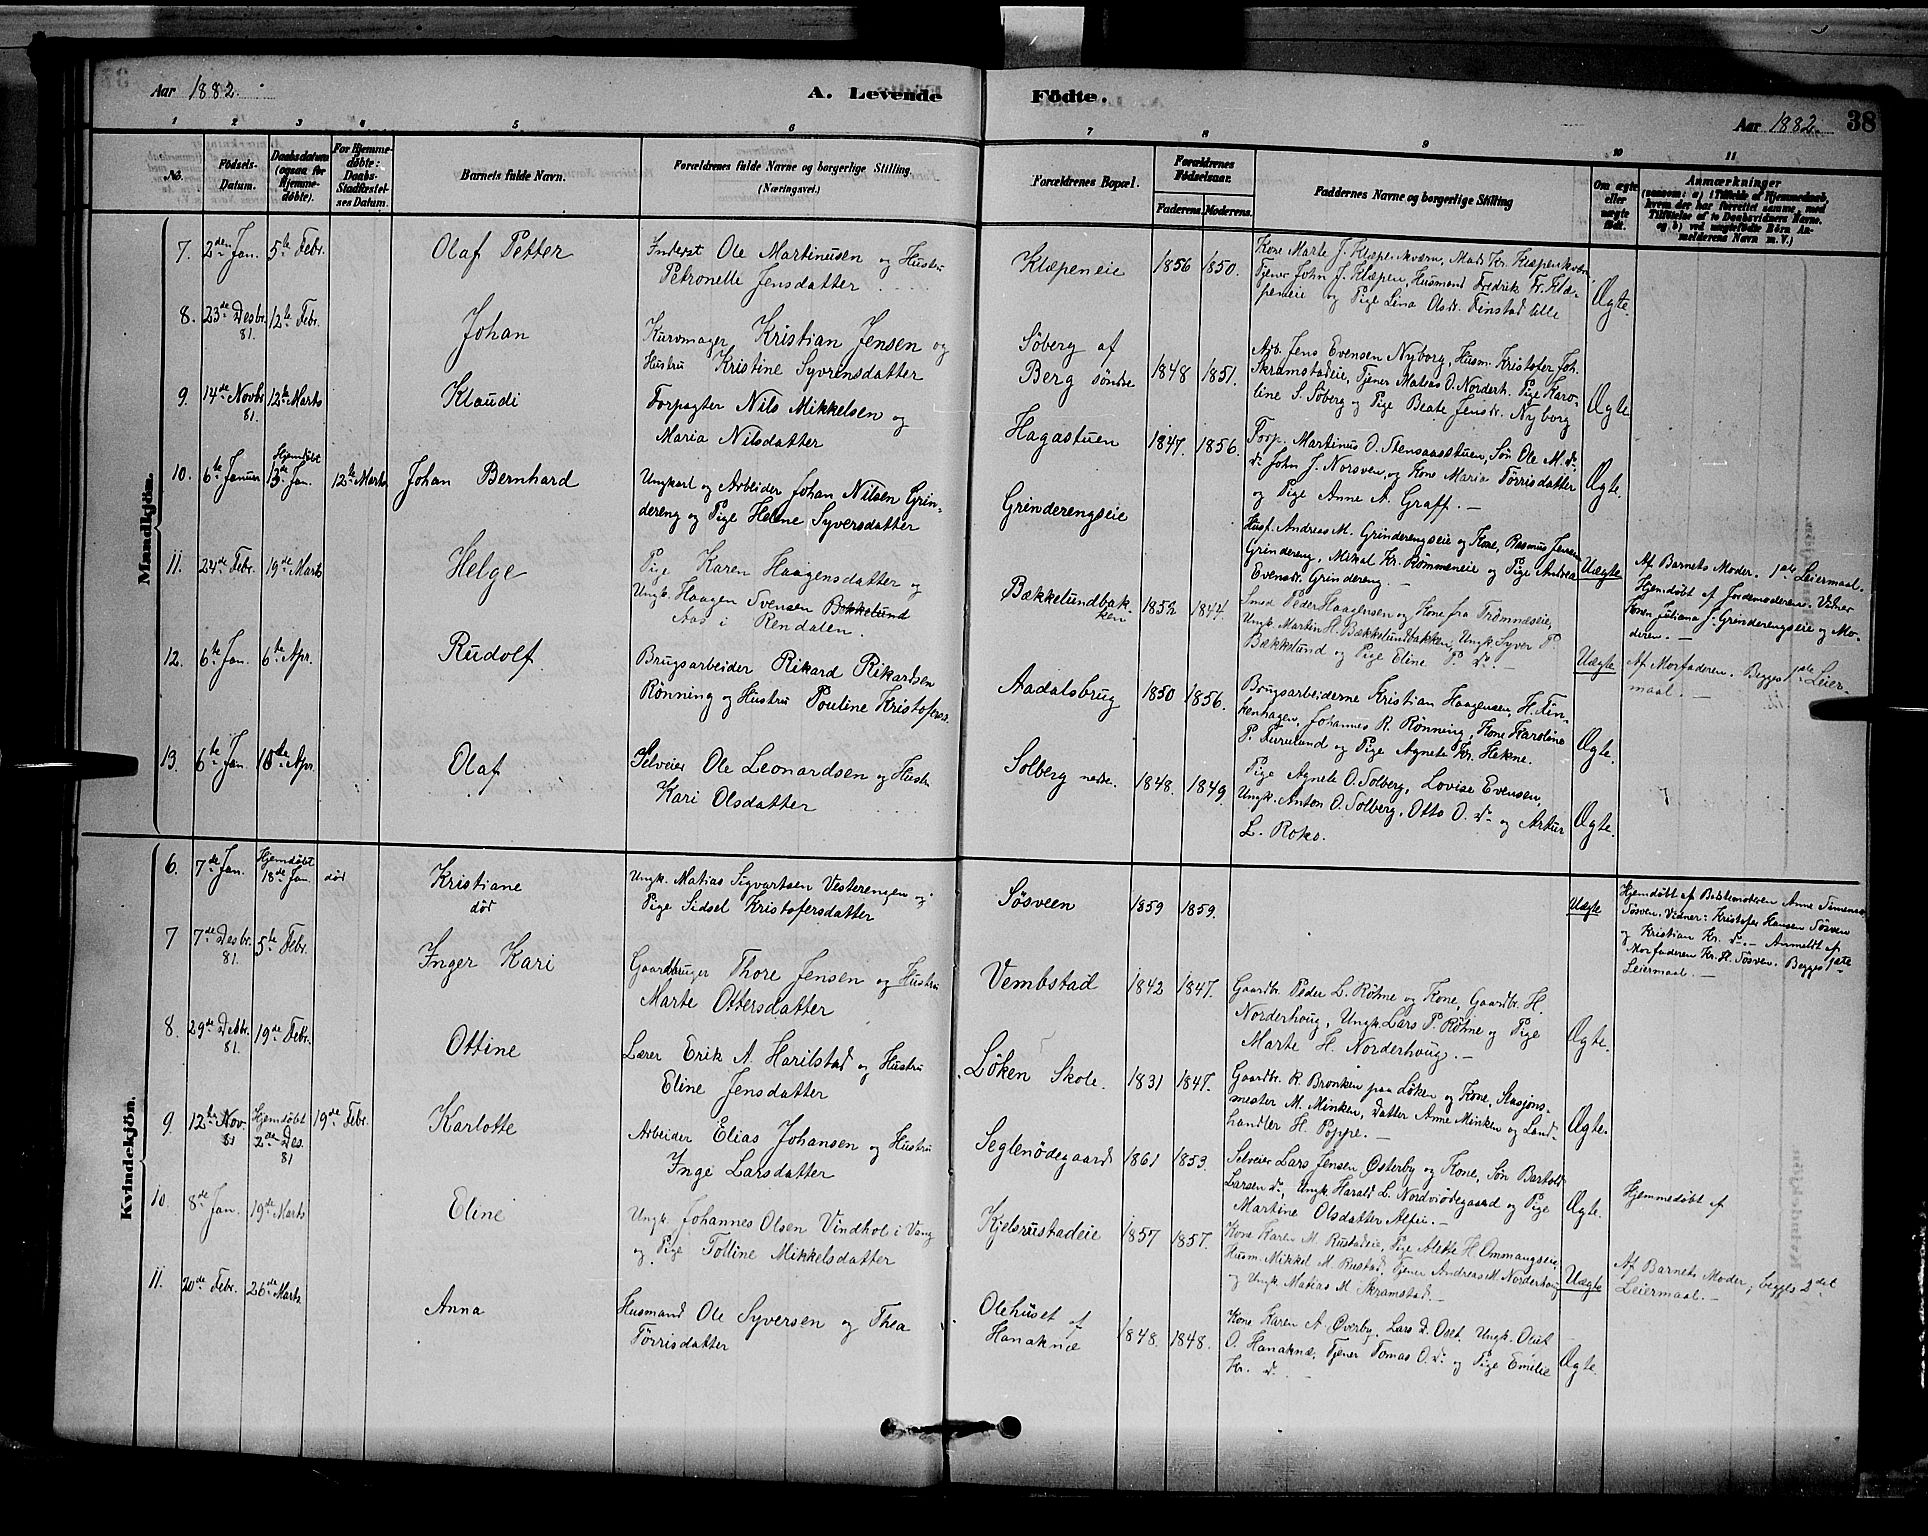 Aar 1882.
A. Levende
Födte.
Aar 1882.
38
1 2 3 4 5 6 7 8 9 10 11
No.
Födsels-
Datum.
Daabsdatum
(ogsaa for
Hjemme-
døbte).
For Hjemme-
døbte:
Daabs-
Stadfæstel-
ses Datum.
Barnets fulde Navn.
Forældrenes fulde Navne og borgerlige Stilling
(Næringsvei.)
Forældrenes Bopæl.
Forældrenes
Födselsaar.
Faderens. Moderens.
Faddernes Navne og borgerlige Stilling
Om ægte
eller
uægte
født.
Anmærkninger
Mandkjön.
7. 2den Jan. 5te Febr.
Olaf Petter
Inderst Ole Martinusen og Hustru
Petronelle Jensdatter
Klæpeneie
1856 1850.
Kone Marte J. Klæpe-kværn, Mads Kr. Klæpenkværn
Tjener John J. Klæpen, Husmand Fredrik Fr. Klæ-
peneie og Pige Lina Olsdr. Finstad lille
Ægte.
8. 23de Desbr. 81. 12te Febr.
Johan
Kurvmager Kristian Jensen og
Hustru Kristine Syvrensdatter
Søberg af
Berg søndre
1848 1851.
Arb. Jens Evensen Nyborg, Husm. Kristofer Joh.
Skramstadeie, Tjener Matias O. Norderh. Pige Karo-
line S. Søberg og Pige Beate Jensdr. Nyborg
Ægte
9. 14de Novbr. 81. 12te Marts
Klaudi
Forpagter Nils Mikkelsen og
Maria Nilsdatter
Hagastuen
1847. 1856.
Forp. Martinus O. Stensaasstuen, Søn Ole M. do.
do. John J. Norsven, og Kone Maria Tørrisdatter
og Pige Anne A. Graff. —
Ægte.
10. 6te Januar Hjemdöbt 13de Jan. 12te Marts
Johan Bernhard
Ungkarl og Arbeider Johan Nilsen Grin-
dereng og Pige Helene Syversdatter
Grinderengseie
Husf. Andreas M. Grinderengseie og Kone, Rasmus Jensen
Grindereng, Mikal Kr. Rømmeneie og Pige Andrea
Evensdr. Grindereng. —
Uægte
Af Barnets Moder. 1ste Leiermaal.
Hjemdöbt af Jordemoderen. Vidner
Juliana J. Grinderengseie og Mo-
deren. —
11. 24de Febr. 19de Marts
Helge
Pige Karen Haagensdatter og
Ungk. Haagen Svensen Bækkelund
Aas i Rendalen.
Bækkelundbak-
ken
1852 1844.
Smed Peder Haagensen og Kone fra Trønnæseie,
Ungk. Martin H. Bækkelundbakken, Ungk. Syver P.
Bækkelund og Pige Eline P. do. —
Uægte
Af Morfaderen. Begges 1ste Leier-
maal. —
12. 6te Jan. 6te Apr.
Rudolf
Brugsarbeider Rikard Rikartsen
Rönning og Hustru Pouline Kristofersd.
Aadalsbrug
1850 1856.
Brugsarbeiderne Kristian Haagensen, H. Fin-
kenhagen, Johannes R. Rønning, Kone Karoline
P. Furulund og Pige Agnete Kr. Hekne.
Ægte.
13. 6te Jan. 10de Apr.
Olaf
Selveier Ole Leonardsen og Hustru
Kari Olsdatter
Solberg nedre.
1848. 1849.
Pige Agnete O. Solberg, Lovise Evensen,
Ungk. Anton O. Solberg, Otto O. do. og Artur
L. Roko.
Ægte.
Kvindekjön.
6. 7de Jan. Hjemdöbt 18de Jan. död
Kristiane
död
Ungk. Matias Sigvartsen Vesterengen og
Pige Sidsel Kristofersdatter
Søsveen
1859 1859.
Uægte
Hjemdöbt af Bedstemoderen Anne Simensd.
Søsven. Vidner: Kristofer Hansen Søsven
og Kristian Kr. do. — Anmeldt af
Morfaderen Kr. H. Søsven. Begges 1ste
Leiermaal. —
7 7de Desbr. 81. 5te Febr.
Inger Kari
Gaardbruger Thore Jensen og Hustru
Marte Ottersdatter
Vembstad
1842 1847.
Gaardbr. Peder L. Röhne og Kone, Gaardbr. H.
Norderhoug, Ungk. Lars P. Röhne og Pige
Marte H. Norderhoug. —
Ægte.
8. 29de Desbr. 81. 19de Febr.
Ottine
Lærer Erik A. Harilstad og Hustru
Eline Jensdatter
Løken Skole.
1831 1847.
Gaardbr. R. Bronken paa Løken og Kone, Stasjons-
mester M. Minken, Datter Anne Minken og Land-
handler H. Poppe. —
Ægte.
9. 12te Nov. 81 Hjemdöbt 2den Des. 81 19de Febr.
Karlotte
Arbeider Elias Johansen og Hustru
Inge Larsdatter
Seglenødegaard
1861 1853.
Selveier Lars Jensen Østerby og Kone, Søn Bartold
Larsen do., Ungk. Harald L. Nordviödegaard og Pige
Martine Olsdatter Alfei. —
Ægte.
Hjemmedöbt af
10. 8de Jan. 19de Marts
Eline
Ungk. Johannes Olsen Vindhol i Vang
og Pige Tolline Mikkelsdatter
Kjelsrustadeie
1857 1857.
Kone Karen M. Rustadeie, Pige Alette H. Ommangseie
Husm. Mikkel M. Rustad, Tjener Andreas M. Norderhoug
og Ungk. Matias M. Skramstad. —
Uægte
Af Barnets Moder, begges 2det
Leiermaal. —
11. 20de Febr. 26de Marts
Anna
Husmand Ole Syversen og Thea
Tørrisdatter
Olehuset af
Hanaknæ
1848. 1848.
Kone Karen A. Øverby, Lars D. Oset. Ungk. Oluf
O. Hanaknæ, Tjener Tomas O. do. og Pige Emilie
Kr. do.
Ægte.